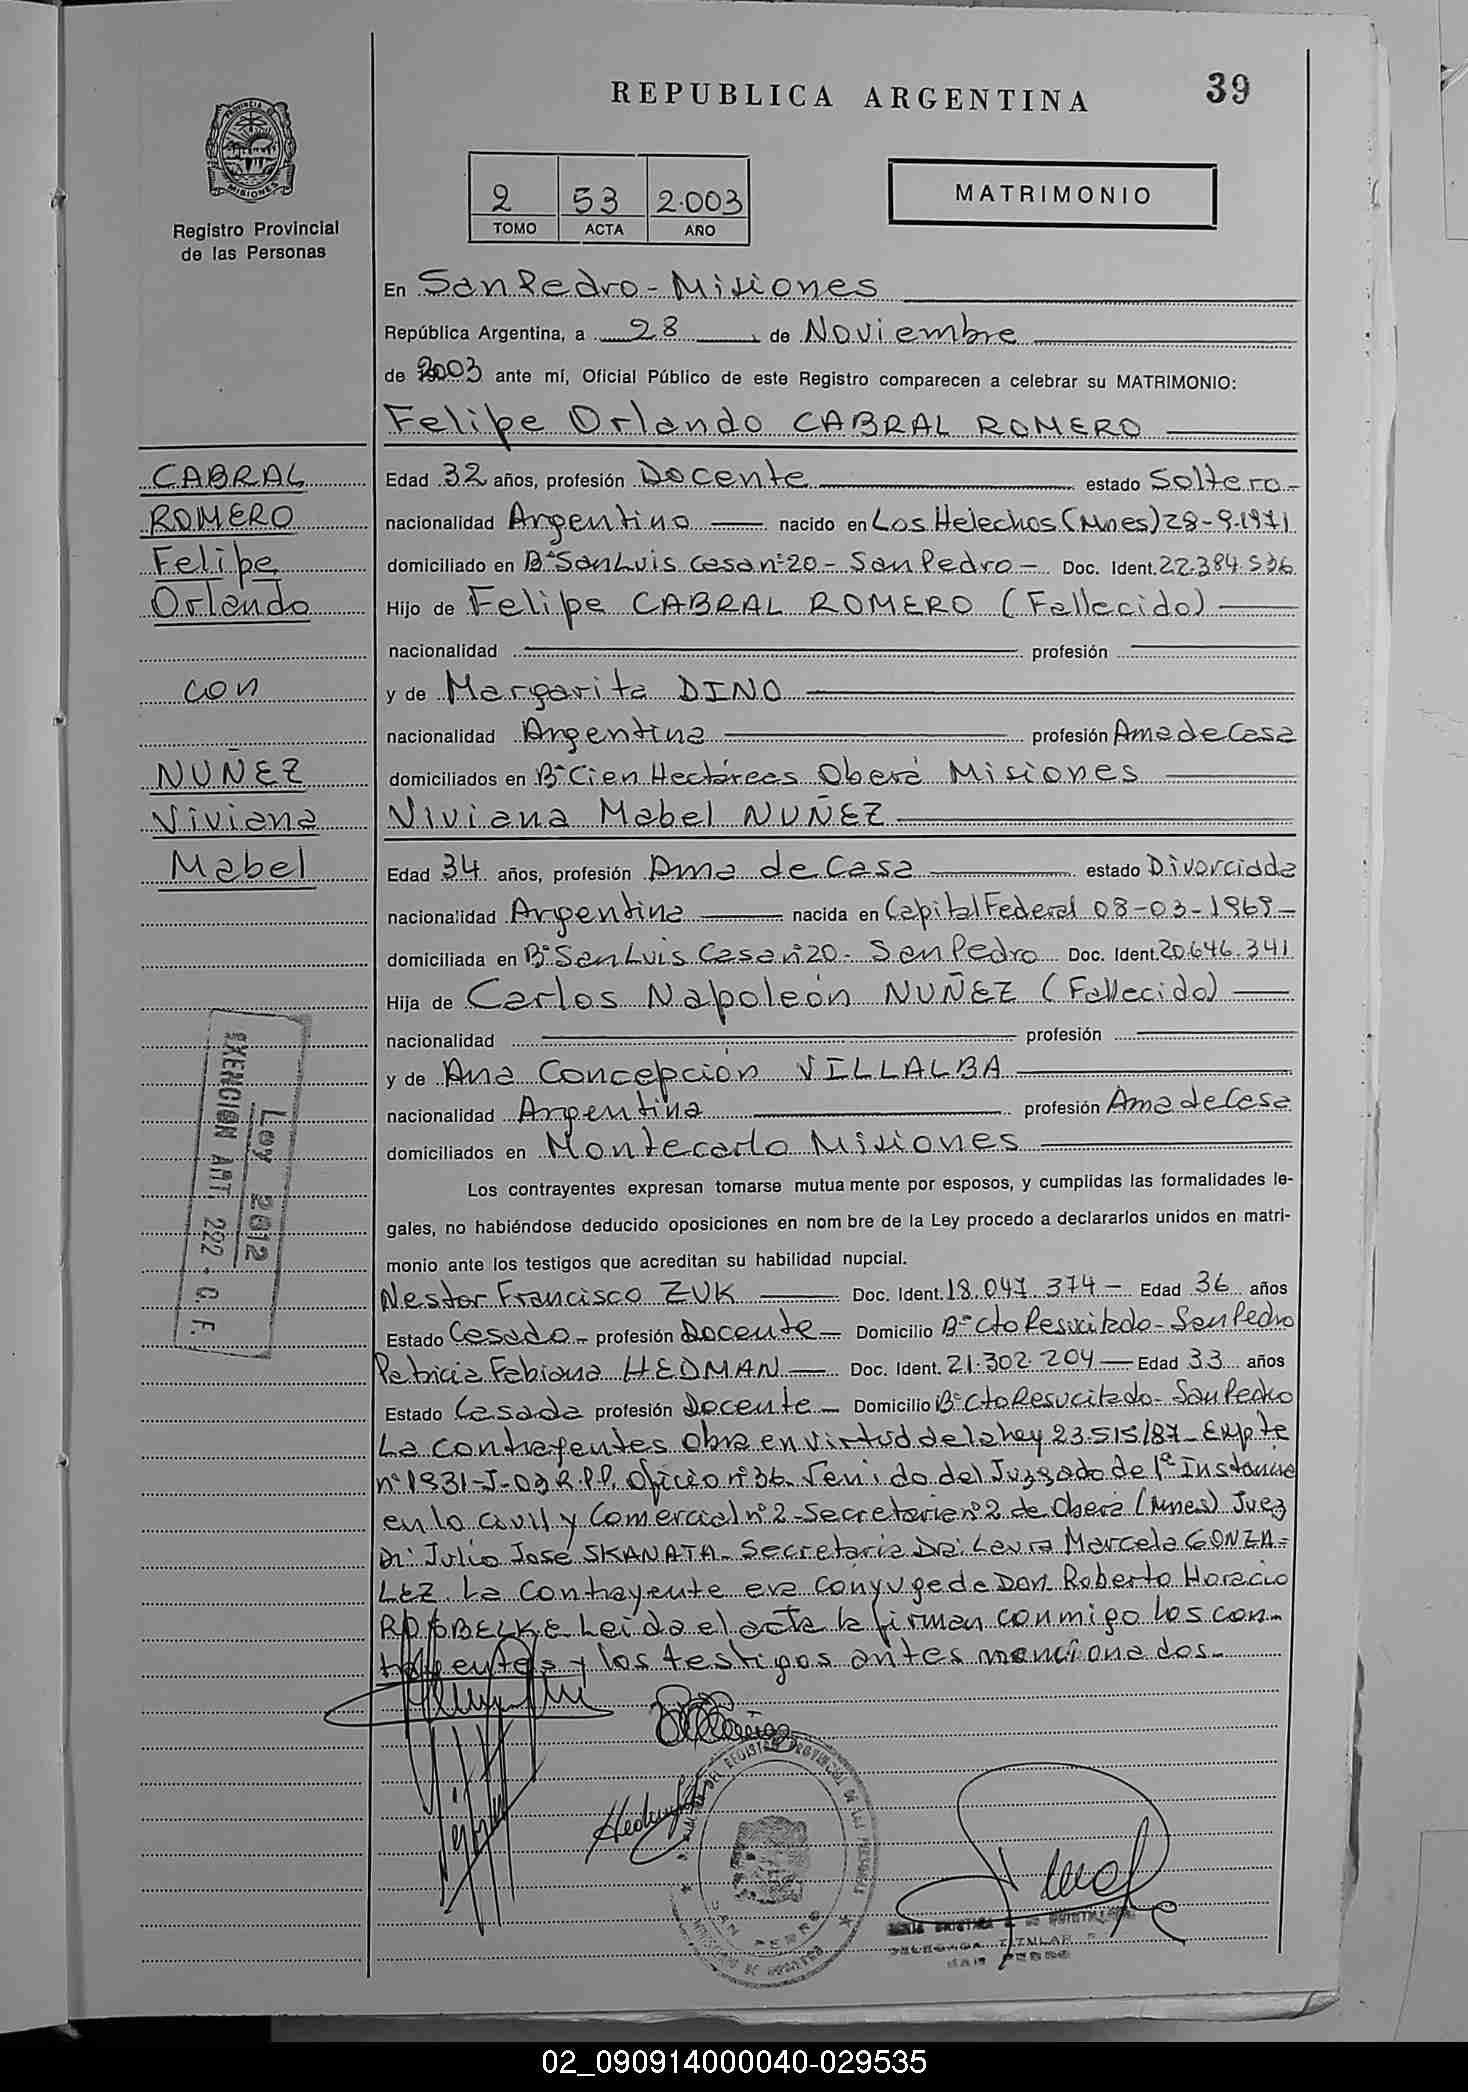 REPUBLICA ARGENTINA
39
PROVINCIA DE MISIONES
Registro Provincial
de las Personas
2 53 2.003
TOMO ACTA AÑO
MATRIMONIO
En San Pedro - Misiones
República Argentina, a 28 de Noviembre
de 2003 ante mí, Oficial Público de este Registro comparecen a celebrar su MATRIMONIO:
Felipe Orlando CABRAL ROMERO
CABRAL
ROMERO
Felipe
Orlando
con
NUÑEZ
Viviana
Mabel
Edad 32 años, profesión Docente estado Soltero-
nacionalidad Argentino nacido en Los Helechos (Mnes) 28-9-1971
domiciliado en B° San Luis Casa n° 20 - San Pedro - Doc. Ident. 22.384.536
Hijo de Felipe CABRAL ROMERO (Fallecido)
nacionalidad profesión
y de Margarita DINO
nacionalidad Argentina profesión Ama de Casa
domiciliados en B° Cien Hectáreas Oberá Misiones
Viviana Mabel NUÑEZ
Edad 34 años, profesión Ama de Casa estado Divorciada
nacionalidad Argentina nacida en Capital Federal 08-03-1969-
domiciliada en B° San Luis Casa n° 20 - San Pedro Doc. Ident. 20.646.341
Hija de Carlos Napoleón NUÑEZ (Fallecido)
nacionalidad profesión
y de Ana Concepción VILLALBA
nacionalidad Argentina profesión Ama de Casa
domiciliados en Montecarlo Misiones
Los contrayentes expresan tomarse mutua mente por esposos, y cumplidas las formalidades le-
gales, no habiéndose deducido oposiciones en nom bre de la Ley procedo a declararlos unidos en matri-
monio ante los testigos que acreditan su habilidad nupcial.
Ley 2812
EXENCION ART. 222 - C. F.
Nestor Francisco ZUK Doc. Ident. 18.047.374 - Edad 36 años
Estado Casado - profesión Docente - Domicilio B° Cto Resucitado - San Pedro
Patricia Fabiana HEDMAN Doc. Ident. 21.302.204 - Edad 33 años
Estado Casada profesión Docente - Domicilio B° Cto Resucitado - San Pedro
La contrayentes obra en virtud de la Ley 23.515/87 - Expte
n° 1931-J-03 R.P.P. Oficio n° 36 - Venido del Juzgado de 1° Instancia
en lo civil y Comercial n° 2 - Secretaria n° 2 de Oberá (Mnes) Juez
Dr. Julio José SKANATA - Secretaria Dra. Laura Marcela GONZA-
LEZ. La Contrayente era Conyuge de Don Roberto Horacio
Leida el acta la firman conmigo los con-
trayentes y los testigos antes mencionados.-
DEL REGISTRO PROVINCIAL DE LAS PERSONAS
SAN PEDRO
DELEGADA TITULAR
SAN PEDRO
02_090914000040-029535